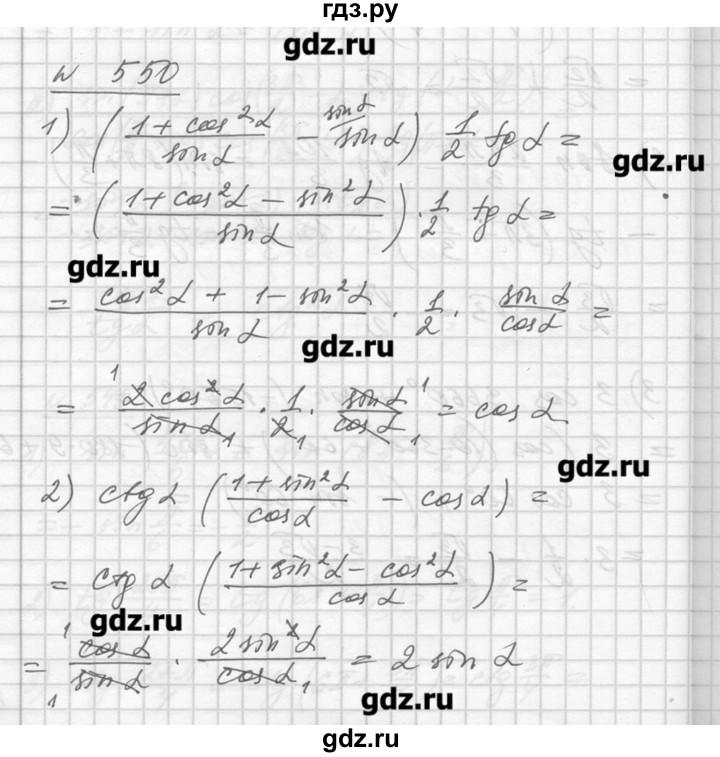 гдз.ру
gdz.ru
№ 550
1) ((1 + cos²α)/(sin α) − sin α / sin α) 1/2 tg α =
gdz.ru
= ((1 + cos²α − sin²α)/(sin α)) · 1/2 tg α =
gdz.ru
= (cos²α + 1 − sin²α)/(sin α) · 1/2 · (sin α)/(cos α) =
gdz.ru
= (2 cos²α)/(sin α) · 1/2 · (sin α)/(cos α) = cos α
gdz.ru
2) ctg α ((1 + sin²α)/(cos α) − cos α) =
= ctg α ((1 + sin²α − cos²α)/(cos α)) =
gdz.ru
= (cos α)/(sin α) · (2 sin²α)/(cos α) = 2 sin α
gdz.ru
gdz.ru